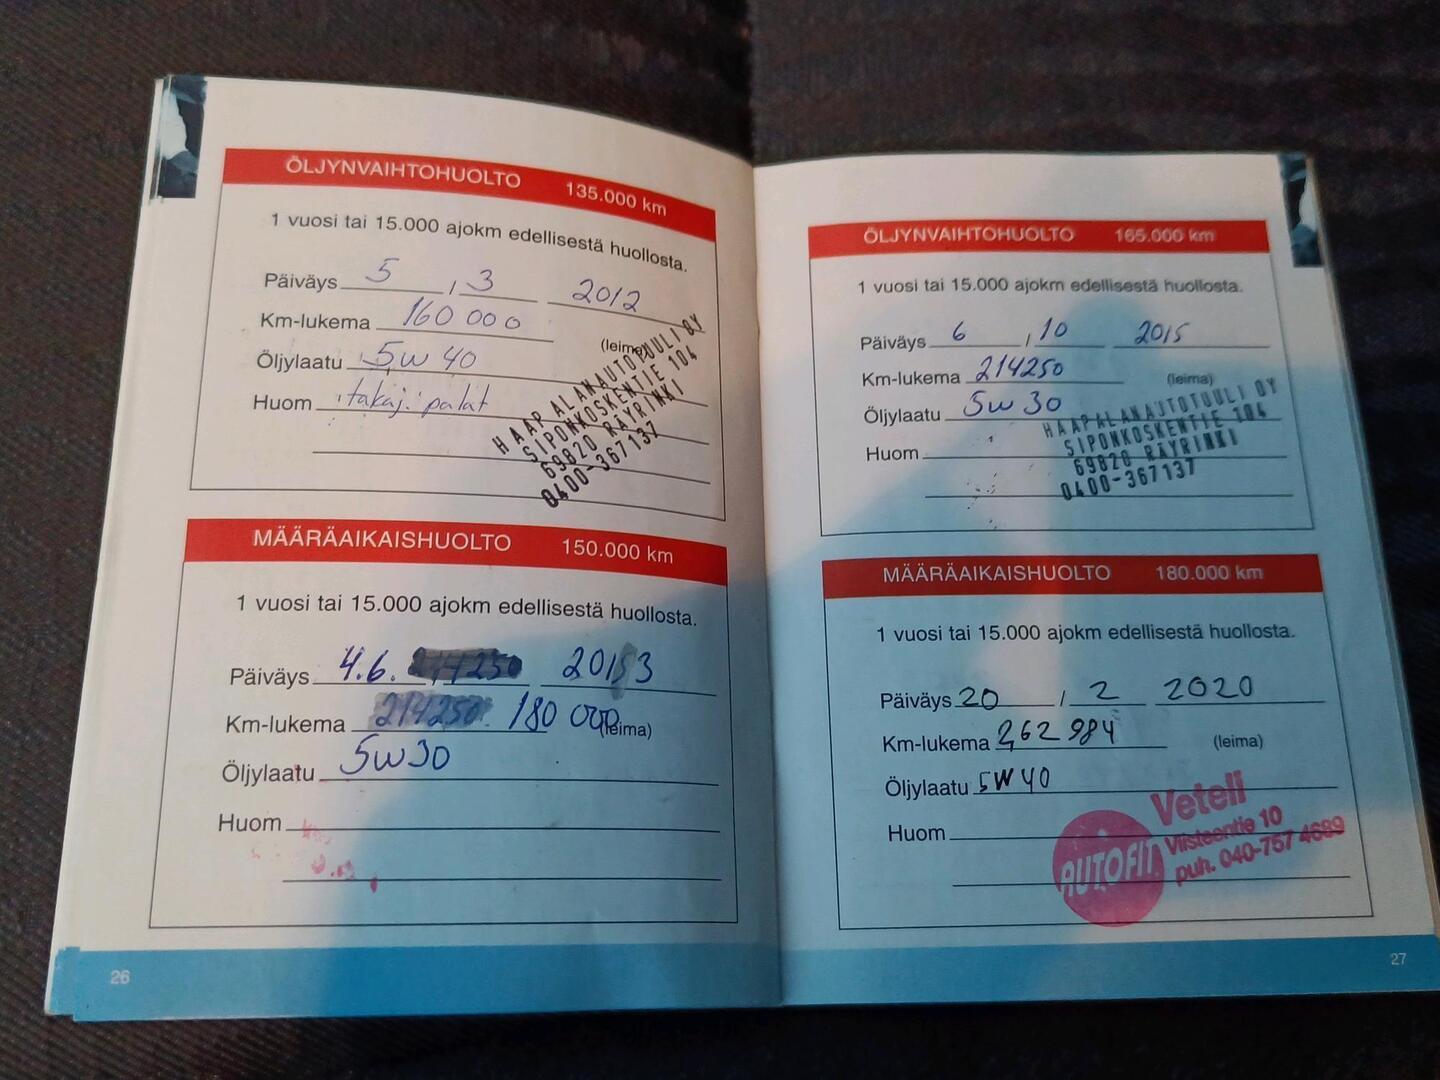 ÖLJYNVAIHTOHUOLTO 135.000 km
1 vuosi tai 15.000 ajokm edellisestä huollosta.
Päiväys 5 / 3 2012
Km-lukema 160 000
(leima)
Öljylaatu 5W 40
Huom takaj. palat
HAAPALANAUTOTUULI OY
SIPONKOSKENTIE 104
69820 RÄYRINKI
0400-367137
MÄÄRÄAIKAISHUOLTO 150.000 km
1 vuosi tai 15.000 ajokm edellisestä huollosta.
Päiväys 4.6. 2013
Km-lukema 214250 180 000
(leima)
Öljylaatu 5W30
Huom
26
ÖLJYNVAIHTOHUOLTO 165.000 km
1 vuosi tai 15.000 ajokm edellisestä huollosta.
Päiväys 6 / 10 2015
Km-lukema 214250 (leima)
Öljylaatu 5W 30
Huom
HAAPALANAUTOTUULI OY
SIPONKOSKENTIE 104
69820 RÄYRINKI
0400-367137
MÄÄRÄAIKAISHUOLTO 180.000 km
1 vuosi tai 15.000 ajokm edellisestä huollosta.
Päiväys 20 / 2 2020
Km-lukema 262 984 (leima)
Öljylaatu 5W 40
Huom
AUTOFIT
Veteli
Viisteentie 10
puh. 040-757 4689
27